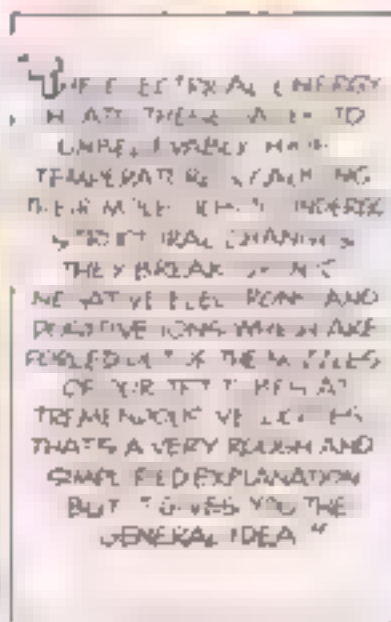 "THE ELECTRICAL ENERGY
HEATS THESE GASES TO
UNBELIEVABLY HIGH
TEMPERATURES, CAUSING
THEIR MOLECULES TO UNDERGO
STRUCTURAL CHANGES
THEY BREAK INTO
NEGATIVE ELECTRONS AND
POSITIVE IONS WHICH ARE
FORCED OUT OF THE NOZZLES
OF OUR JET TUBES AT
TREMENDOUS VELOCITIES
THAT'S A VERY ROUGH AND
SIMPLIFIED EXPLANATION
BUT IT GIVES YOU THE
GENERAL IDEA "